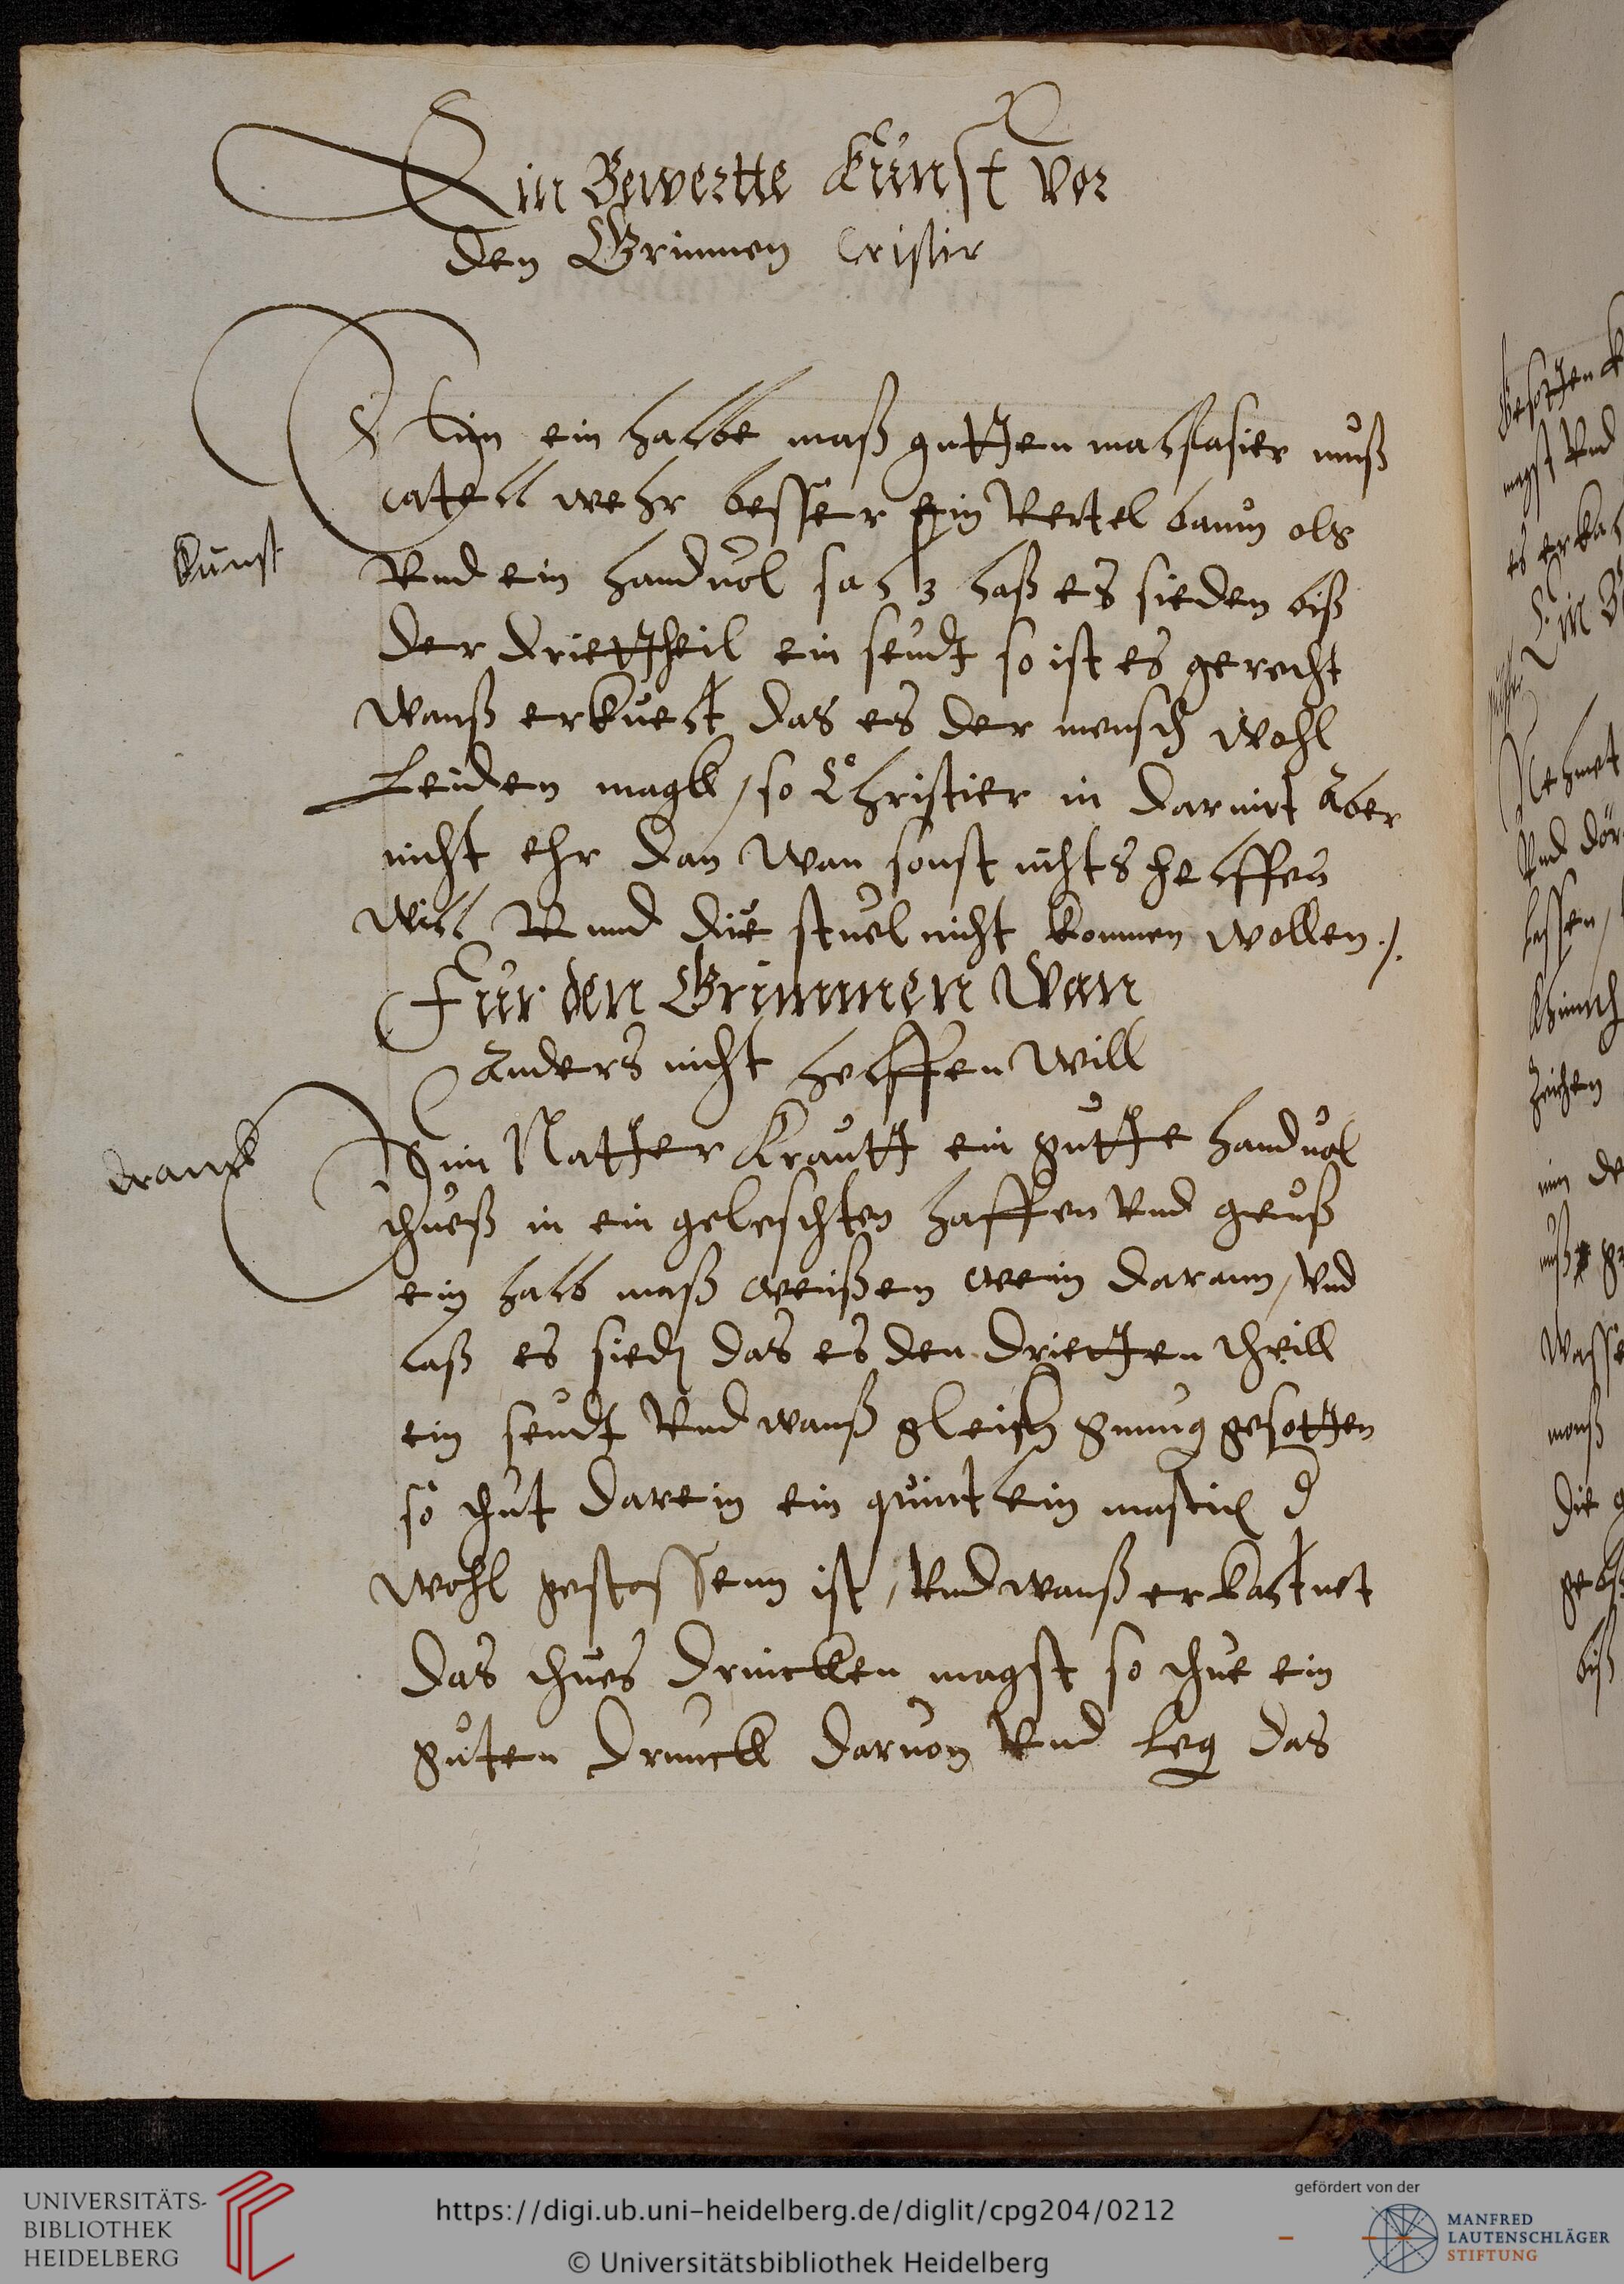 Ein Bewertte Kunst Vor
den Grimmen Cristir
Nim ein halbe maß gutten malfasier muß
catell wehr besser ein Vertel baum ols
Kunst
Vnd ein handuol saltz laß es sieden biß
der driettheil ein seudt so ist es gerecht
Wanß erkuelt das es der mensch wohl
Leiden magk / so Christier in darmit Aber
nicht ehr dan wan sonst nichts helffen
will Vnnd die stuel nicht kommen wollen ./.
Für den Grimmen Wan
Anders nicht helffen Will
dranck
Nim Natter Krautt ein gutte handuol
thueß in ein geleschten haffen Vnd geuß
ein halb maß weißen wein darann / Vnd
laß es siedn das es den dritten theill
ein seudt Vnd wanß gleich gnug gesotten
so thut darein ein quintlein mastix d
wohl gestossenn ist / Vnd wanß erkaltnet
das thues drincken magst so thue ein
guten drunck daruon Vnd leg das
UNIVERSITÄTS-
BIBLIOTHEK
HEIDELBERG
https://digi.ub.uni-heidelberg.de/diglit/cpg204/0212
© Universitätsbibliothek Heidelberg
gefördert von der
MANFRED
LAUTENSCHLÄGER
STIFTUNG